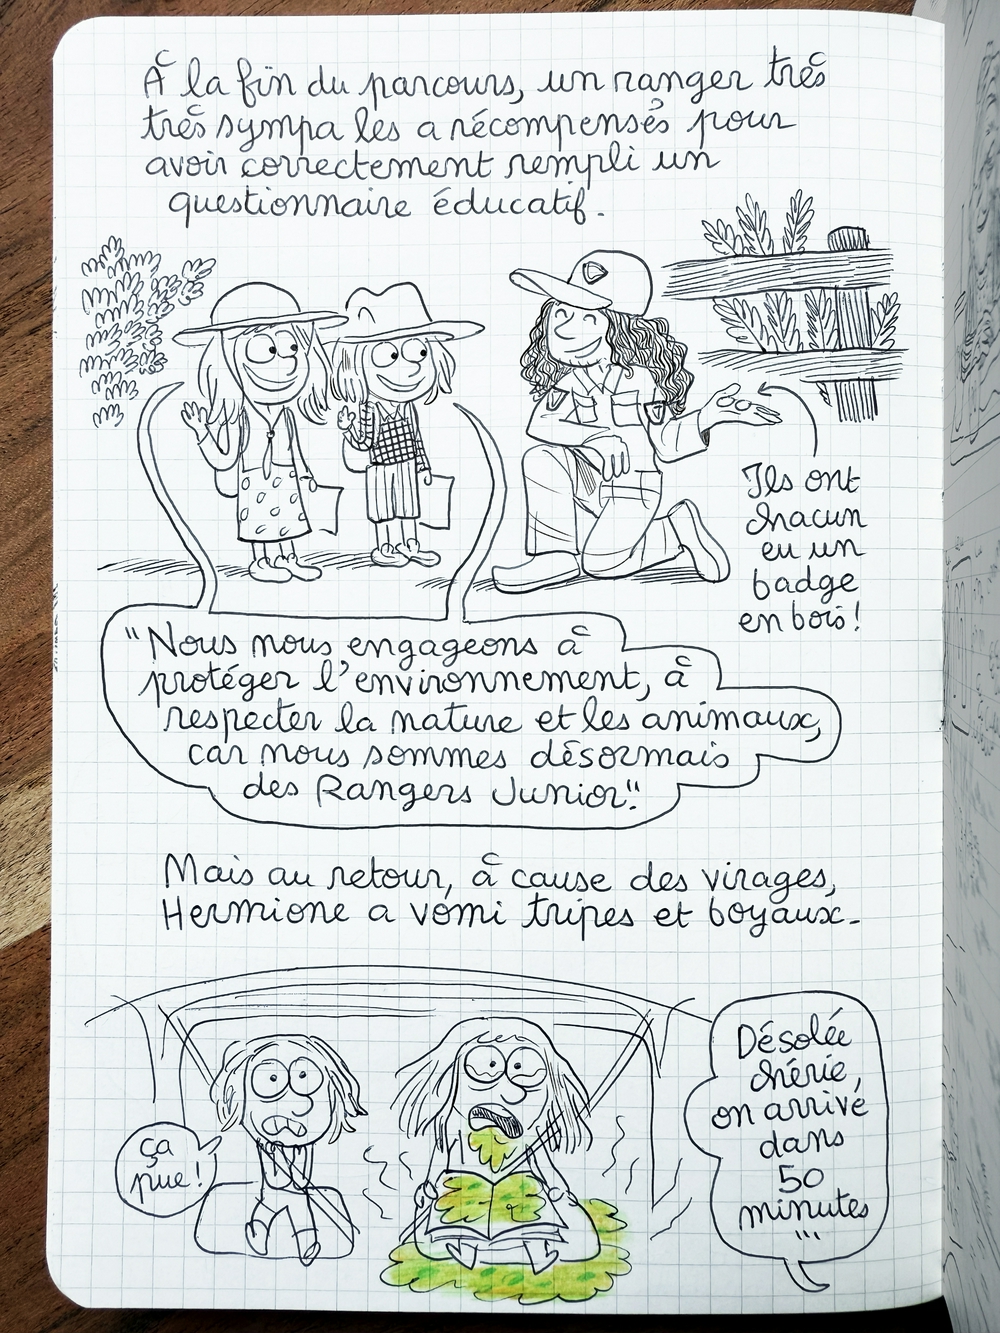 À la fin du parcours, un ranger très
très sympa les a récompensés pour
avoir correctement rempli un
questionnaire éducatif.
Ils ont
chacun
eu un
badge
en bois !
"Nous nous engageons à
protéger l'environnement, à
respecter la nature et les animaux,
car nous sommes désormais
des Rangers Junior."
Mais au retour, à cause des virages,
Hermione a vomi tripes et boyaux.
ça
pue !
Désolée
chérie,
on arrive
dans
50
minutes
...